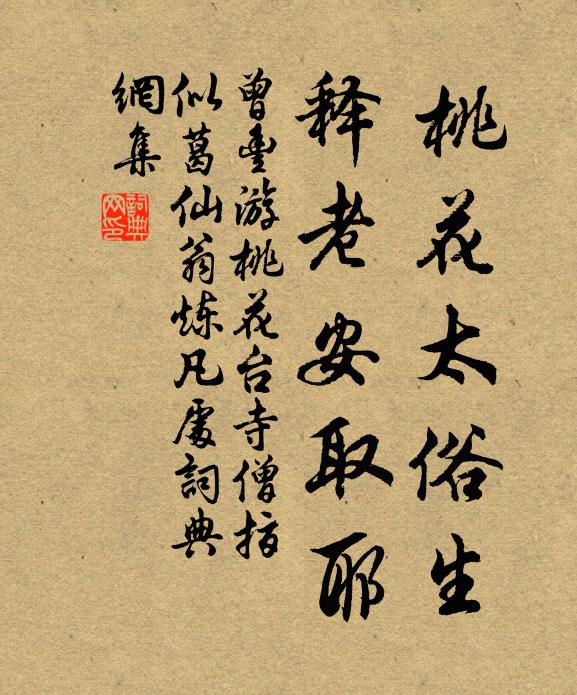 桃花太俗生
释老安取耶
曾豐游桃花台寺僧指
似葛仙翁炼凡處詞典
網集
詞典網印